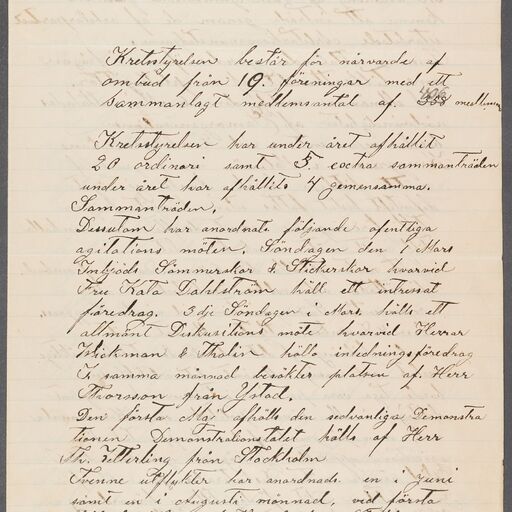 Kretsstyrelsen består för närvarde af
ombud från 19. föreningar med ett
sammanlagt medlemsantal af. 406 medlemmar
Kretsstyrelsen har under året afhållit
20 ordinari samt 5. exstra sammanträden
under året har afhållits 4 gemensamma.
Sammanträden.
Dessutom har anordnats följande ofentliga
agitations möten. Söndagen den 1 Mars
Inbjöds Sömmerskor & Stickerskor hvarvid
Fru Kata Dahlström höll ett intressat
föredrag. 3dje Söndagen i Mars hölls ett
allmänt Diskusitions möte hvarvid Herrar
Wickman & Thalin höllo inledningsföredrag
I samma månnad besöktes platsen af Herr
Thorsson från Ystad.
Den första Maj afhölls den sedvanliga Demonstra
tionen Demonstrationstalet hölls af Herr
Th. Zetterling från Stockholm
Tvenne utflykter har anordnads en i juni
samt en i Augusti månnad, vid första